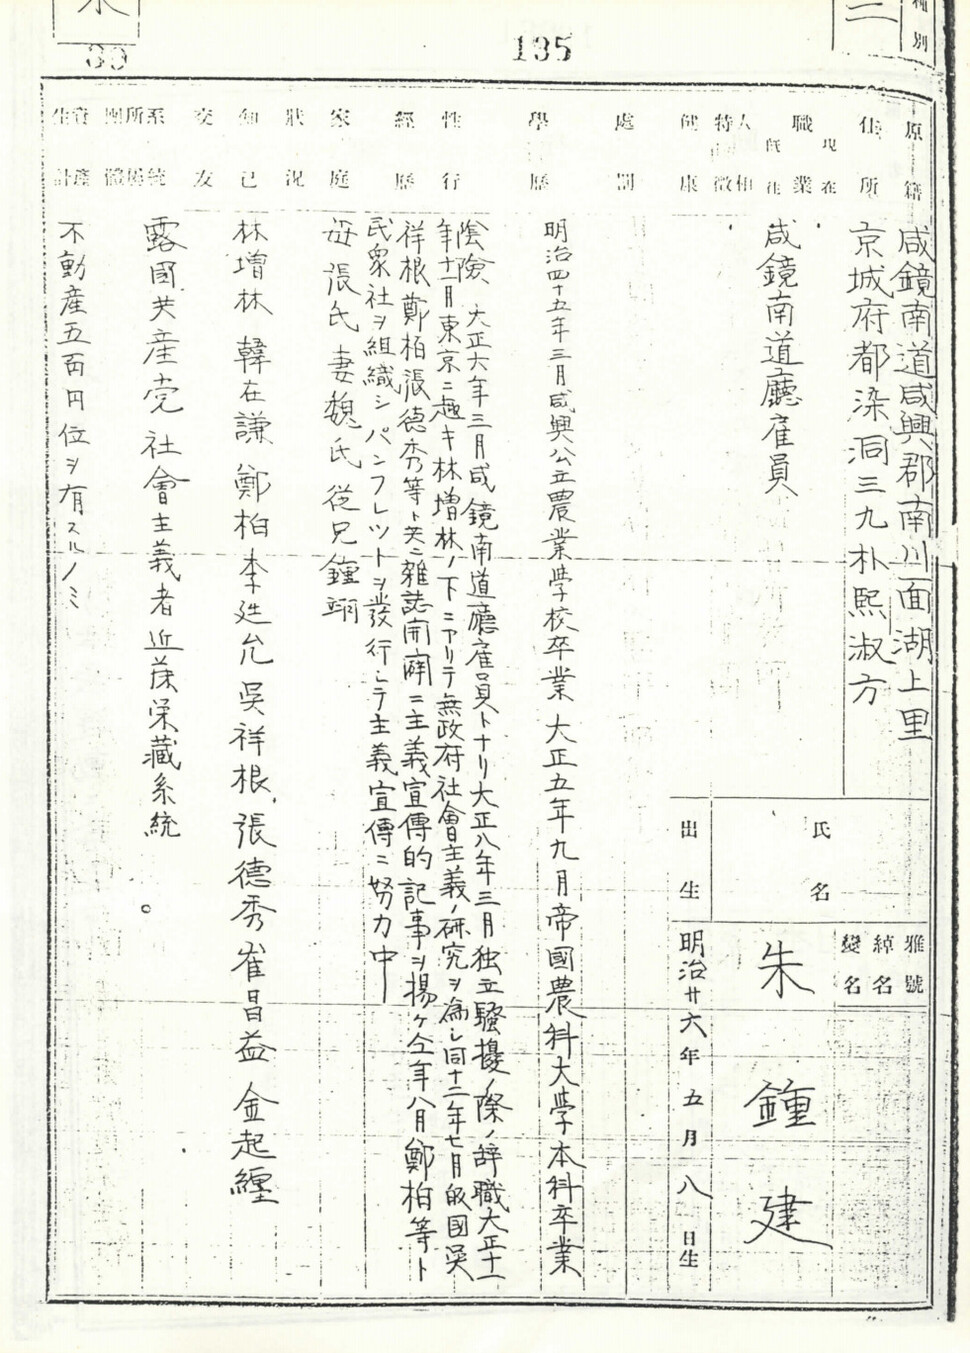 135
39
種別
三
朱
原籍
咸鏡南道咸興郡南川面湖上里
住所
京城府都染洞三九朴熙淑方
職業
現在
既往
咸鏡南道廳雇員
氏名
雅號
綽名
變名
朱鍾建
人相
特徵
健康
出生
明治廿六年五月八日生
處罰
學歷
明治四十五年三月咸興公立農業学校卒業 大正五年九月帝國農科大学本科卒業
性行
陰険
經歷
大正六年三月咸鏡南道廳雇員トナリ大正八年三月独立騷擾ノ際ノ辞職大正十一
年十二月東京ニ趣キ林增林ノ下ニアリテ無政府社會主義ノ研究ヲ為シ同十二年七月皈國吳
祥根鄭柏張德秀等ト共ニ雜誌開闢ニ主義宣傳的記事ヲ揭ケ今年八月鄭柏等ト
民衆社ヲ組織シパンフレットヲ發行シテ主義宣傳ニ努力中
家庭
狀況
母張氏 妻魏氏 從兄鍾翊
知己
交友
林增林 韓在謙 鄭柏 李廷允 吳祥根 張德秀 崔昌益 金起纏
系統
所屬
團體
露國共産党社會主義者近藤栄藏系統
資産
生計
不動産五百円位ヲ有スルノミ